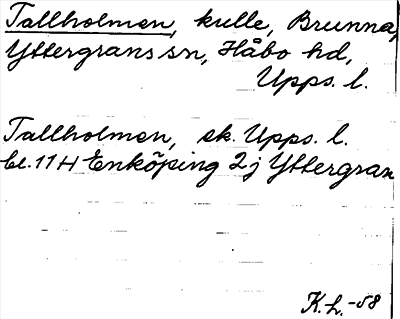 Tallholmen, kulle, Brunna,
Yttergrans sn, Håbo hd,
Upps. l.
Tallholmen, ek. Upps. l.
bl. 11 H Enköping 2j Yttergran
K.h. -58